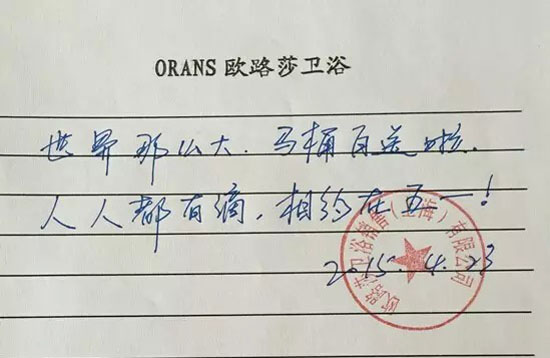 ORANS 欧路莎卫浴
世界那么大.马桶百送啦.
人人都有滴,相约在五一!
2015.4.23
欧路莎卫浴销售(上海)有限公司